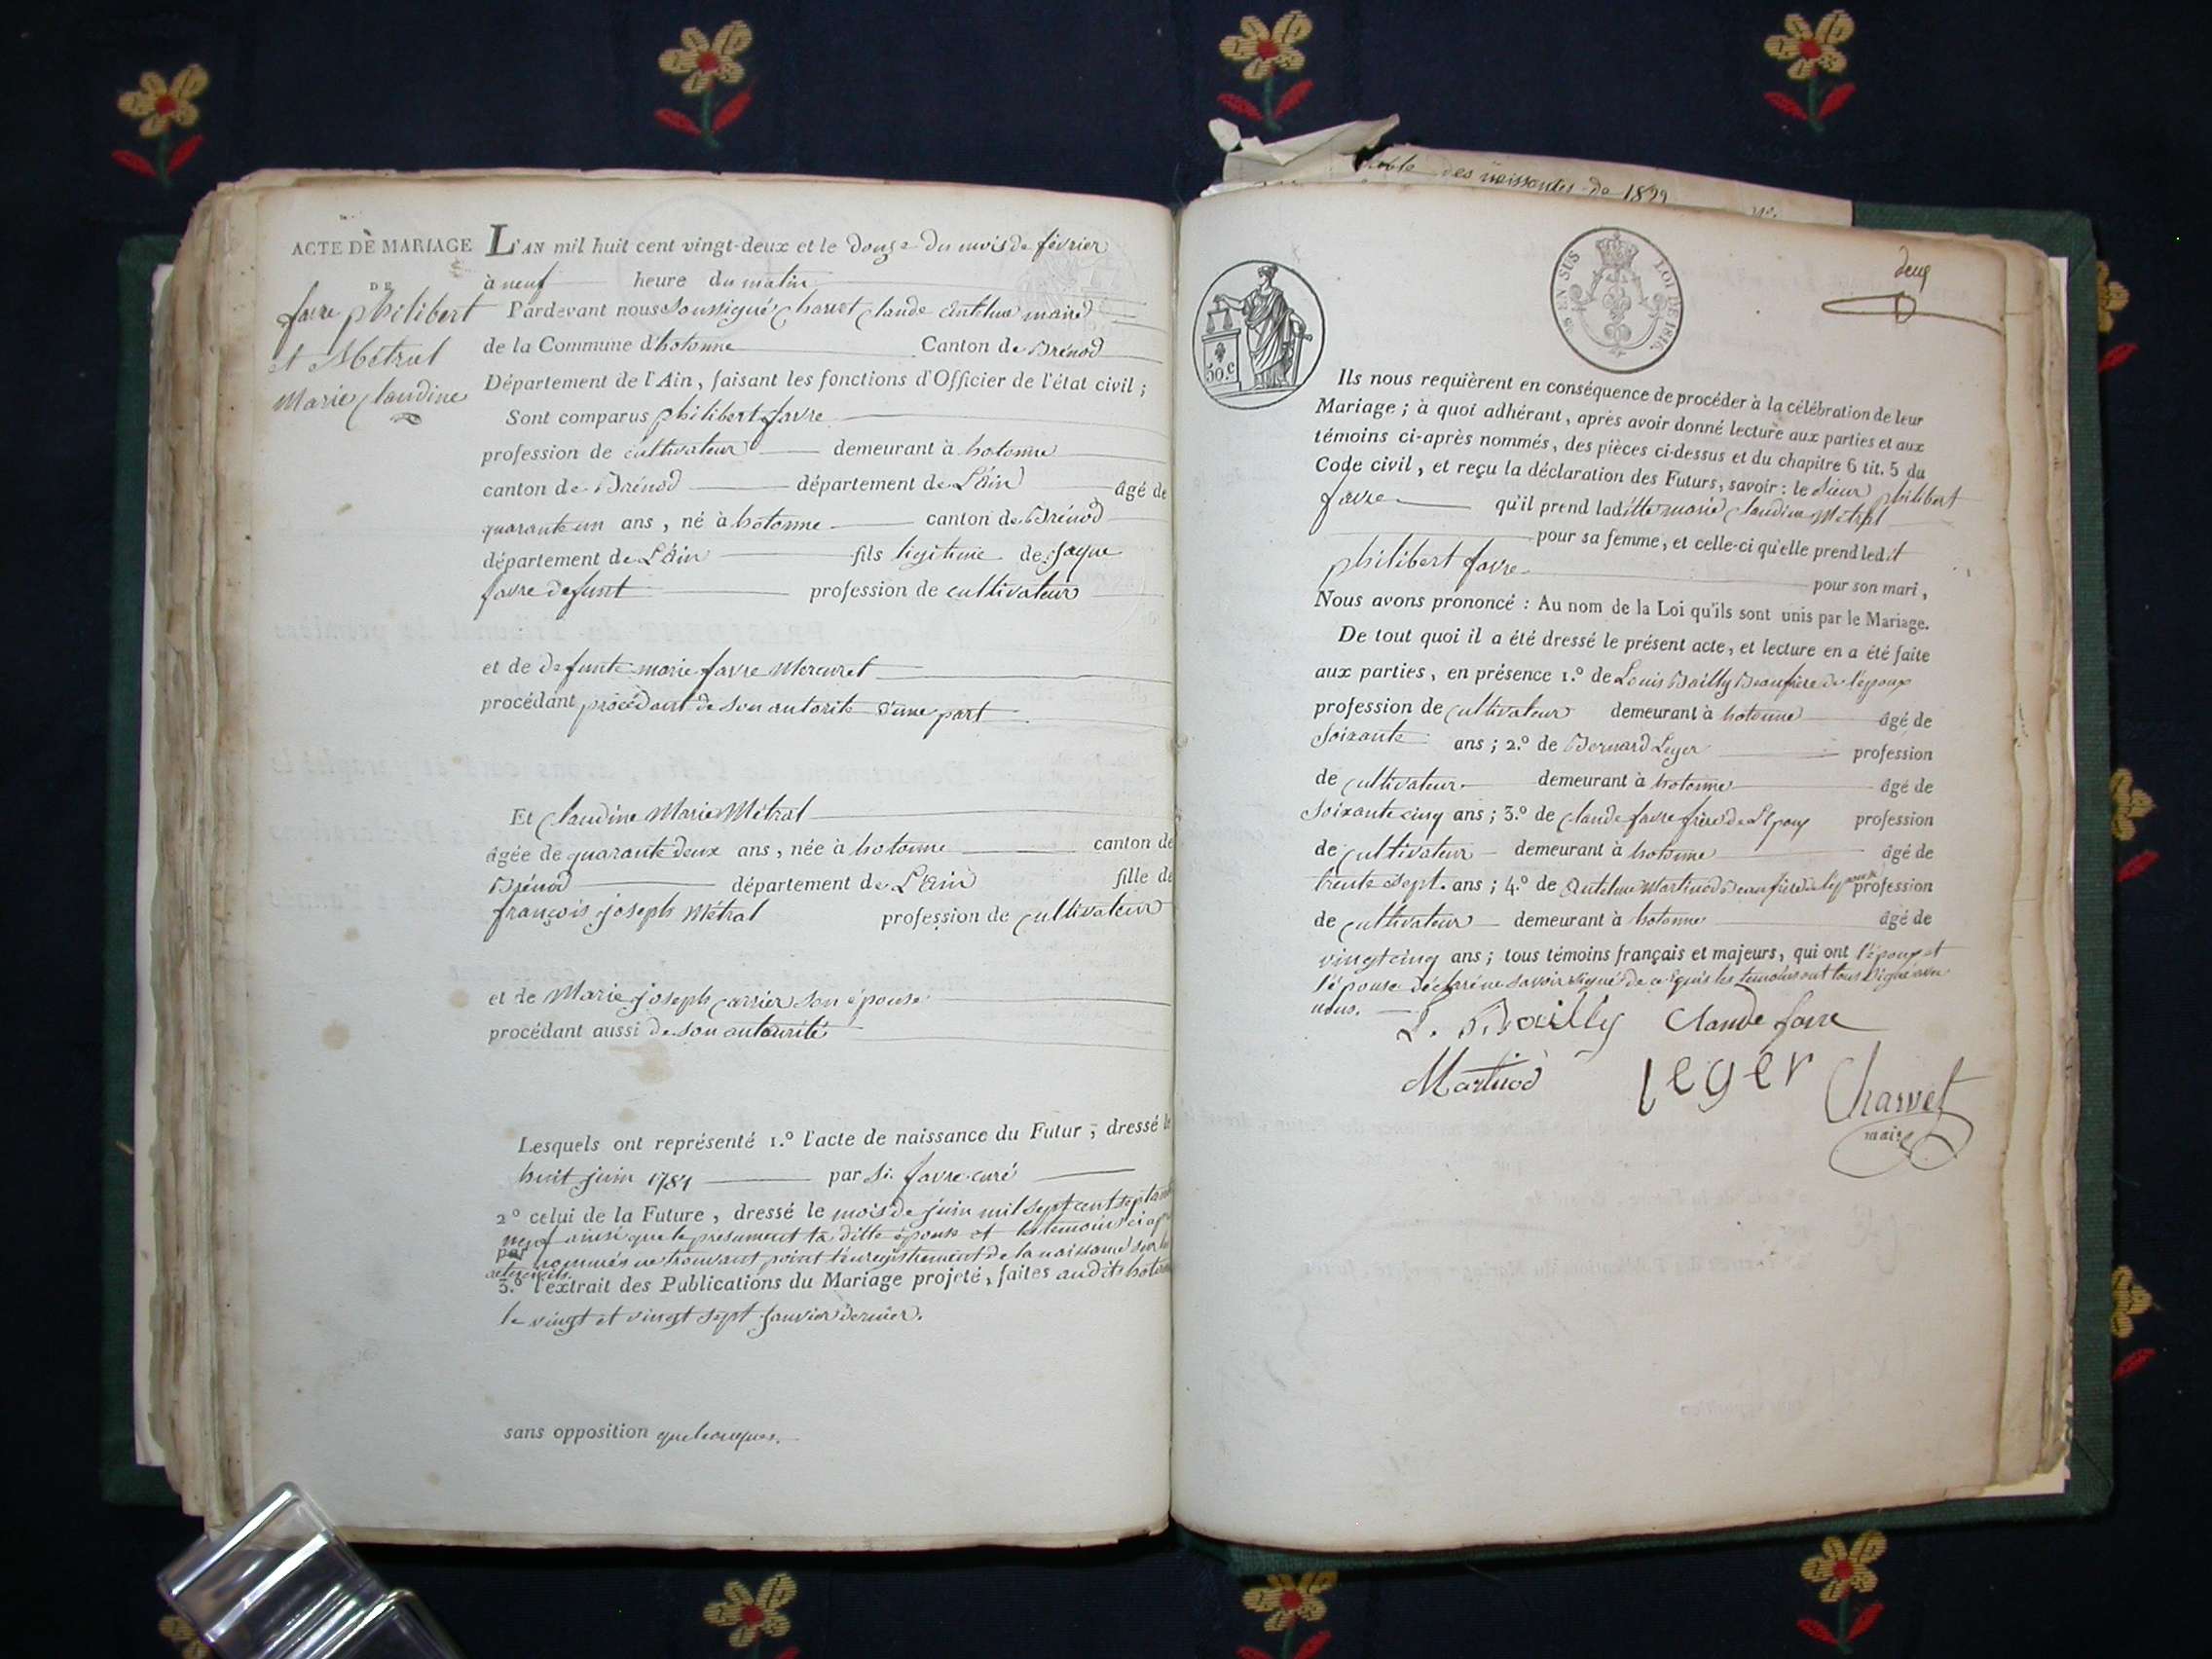 table des naissantes de 1822
ACTE DE MARIAGE
DE
favre philibert
et Métral
Marie Claudine
L'AN mil huit cent vingt-deux et le douze du mois de février
à neuf heure du matin
Pardevant nous soussigné Charvet Claude Antelme maire
de la Commune d'hotonne Canton de Brénod
Département de l'Ain, faisant les fonctions d'Officier de l'état civil ;
Sont comparus philibert favre
profession de cultivateur demeurant à hotonne
canton de Brénod département de L'ain âgé de
quarante un ans, né à hotonne canton de Brénod
département de L'ain fils légitime de Jaque
favre defunt profession de cultivateur
et de defunte marie favre Mercuret
procédant procédant de son autorité d'une part
Et Claudine Marie Métral
âgée de quarante deux ans, née à hotonne canton de
Brénod département de L'Ain fille de
françois joseph Métral profession de cultivateur
et de Marie joseph Carrier son épouse
procédant aussi de son autaurité
Lesquels ont représenté 1.º l'acte de naissance du Futur, dressé le
huit juin 1781 par Si. favre curé
2º celui de la Future, dressé le mois de juin mil sept cent septante
neuf ainsi que le présument la ditte épouse et les temoins ci ap
par nommés ne trouvant point l'enregistrement de la naissance sur les
3.º l'extrait des Publications du Mariage projeté, faites audits hotonne
le vingt et vingt sept janvier dernier.
sans opposition quelconques.
50.c
EN SUS LOI DE 1816.
deux
Ils nous requièrent en conséquence de procéder à la célébration de leur
Mariage ; à quoi adhérant, après avoir donné lecture aux parties et aux
témoins ci-après nommés, des pièces ci-dessus et du chapitre 6 tit. 5 du
Code civil, et reçu la déclaration des Futurs, savoir : le sieur philibert
favre qu'il prend laditte marie Claudine Métral
pour sa femme, et celle-ci qu'elle prend ledit
philibert favre pour son mari,
Nous avons prononcé : Au nom de la Loi qu'ils sont unis par le Mariage.
De tout quoi il a été dressé le présent acte, et lecture en a été faite
aux parties, en présence 1.º de Louis Bailly Beaufrère de l'époux
profession de Cultivateur demeurant à hotonne âgé de
soixante ans ; 2.º de Bernard Leger profession
de Cultivateur demeurant à hotonne âgé de
soixante cinq ans ; 3.º de Claude favre frère de L'époux profession
de Cultivateur demeurant à hotonne âgé de
trente sept ans ; 4.º de Antelme Martinod Beaufrère de l'épouse profession
de Cultivateur demeurant à hotonne âgé de
vingt cinq ans ; tous témoins français et majeurs, qui ont l'époux et
l'épouse déclaré ne savoir signé de ce requis les temoins ont tous signé avec
nous.
L. Bailly Claude favre
Martinod leger Charvet
maire